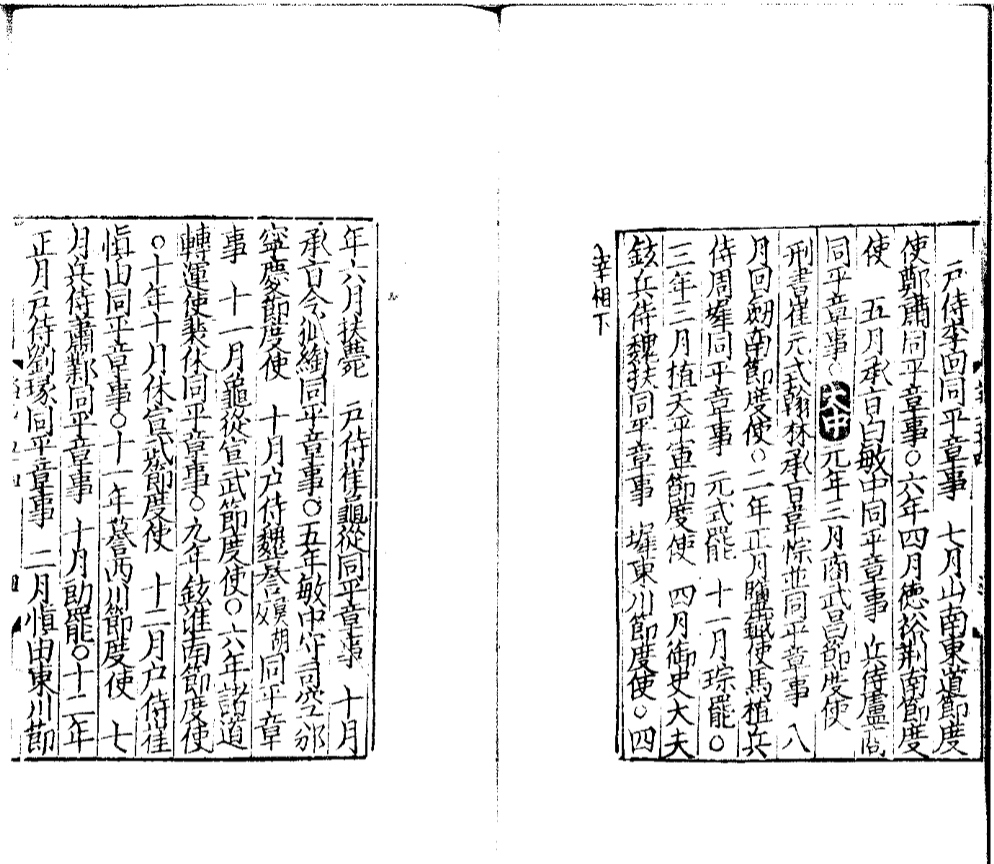 戸侍李回同平章事 七月山南東道節度
使鄭肅同平章事○六年四月徳裕荆南節度
使 五月承㫖白敏中同平章事 兵侍盧商
同平章事○大中元年三月商武昌節度使
刑書崔元式翰林承㫖韋悰並同平章事 八
月回劒南節度使○二年正月贈鐵使馬植兵
侍周墀同平章事 元式罷 十一月琮罷○
三年三月植天平軍節度使 四月御史大夫
鉉兵侍魏扶同平章事 墀東川節度使○四
宰相下
年六月扶薨 戸侍崔龜從同平章事 十月
承㫖令狐綯同平章事○五年敏中守司空邠
寧慶節度使 十月戸侍魏謩同平章
事 十一月龜從宣武節度使○六年諸道
轉運使裴休同平章事○九年鉉淮南節度使
○十年十月休宣武節度使 十二月戸侍崔
慎由同平章事○十一年謩西川節度使 七
月兵侍肅鄴同平章事 十月助罷○十二年
正月戸侍劉瑑同平章事 二月慎由東川節